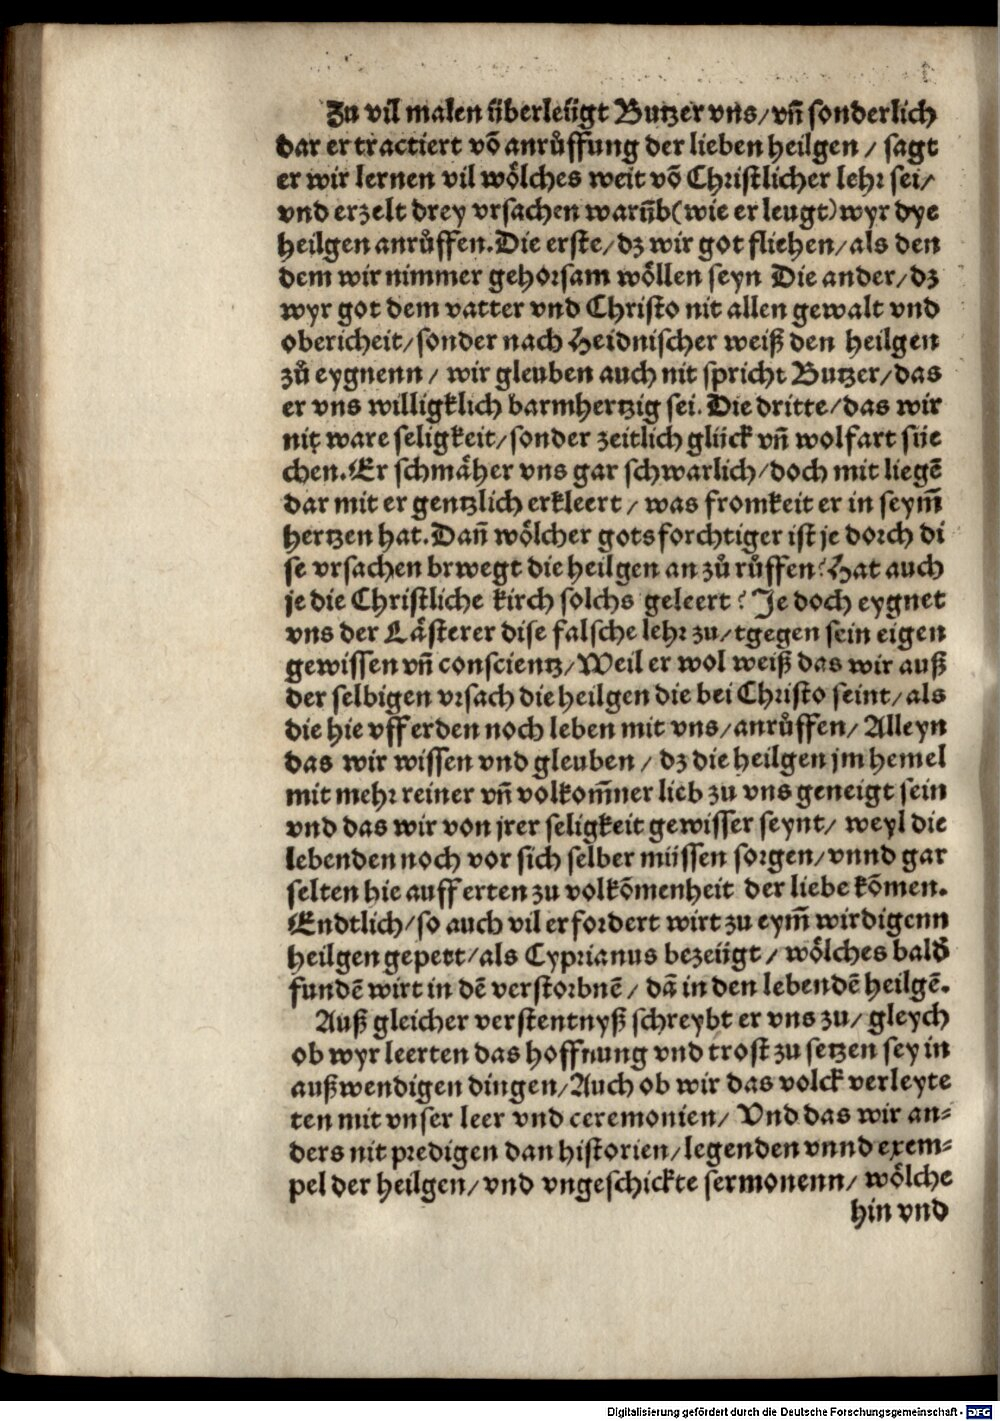 Zu vil malen überleügt Butzer vns/ vñ sonderlich
dar er tractiert võ anrůffung der lieben heilgen / sagt
er wir lernen vil wölches weit võ Christlicher lehr sei/
vnd erzelt drey vrsachen warūb(wie er leugt)wyr dye
heilgen anrůffen.Die erste/dz wir got fliehen/als den
dem wir nimmer gehorsam wöllen seyn Die ander/dz
wyr got dem vatter vnd Christo nit allen gewalt vnd
obericheit/sonder nach Heidnischer weiß den heilgen
zů eygnenn / wir gleuben auch nit spricht Butzer/das
er vns willigklich barmhertzig sei. Die dritte/das wir
nit ware seligkeit/sonder zeitlich glück vñ wolfart süe
chen.Er schmäher vns gar schwarlich/doch mit liegē
dar mit er gentzlich erkleert / was fromkeit er in seym̃
hertzen hat.Dañ wölcher gots forchtiger ist je dorch di
se vrsachen brwegt die heilgen an zů růffen? Hat auch
je die Christliche kirch solchs geleert? Je doch eygnet
vns der Lästerer dise falsche lehr zu/tgegen sein eigen
gewissen vñ conscientz/Weil er wol weiß das wir auß
der selbigen vrsach die heilgen die bei Christo seint/als
die hie vff erden noch leben mit vns/anrůffen/ Alleyn
das wir wissen vnd gleuben / dz die heilgen jm hemel
mit mehr reiner vñ volkom̃ner lieb zu vns geneigt sein
vnd das wir von jrer seligkeit gewisser seynt/ weyl die
lebenden noch vor sich selber müssen sorgen/vnnd gar
selten hie auff erten zu volkõmenheit der liebe kõmen.
Endtlich/so auch vil erfordert wirt zu eym̃ wirdigenn
heilgen gepett/als Cyprianus bezeügt / wölches bald
fundē wirt in dē verstorbnē / dā in den lebendē heilgē.
Auß gleicher verstentnyß schreybt er vns zu/ gleych
ob wyr leerten das hoffnung vnd trost zu setzen sey in
außwendigen dingen/Auch ob wir das volck verleyte
ten mit vnser leer vnd ceremonien/ Vnd das wir an⸗
ders nit predigen dan historien/legenden vnnd exem⸗
pel der heilgen/vnd vngeschickte sermonenn/ wölche
hin vnd
Digitalisierung gefördert durch die Deutsche Forschungsgemeinschaft - DFG